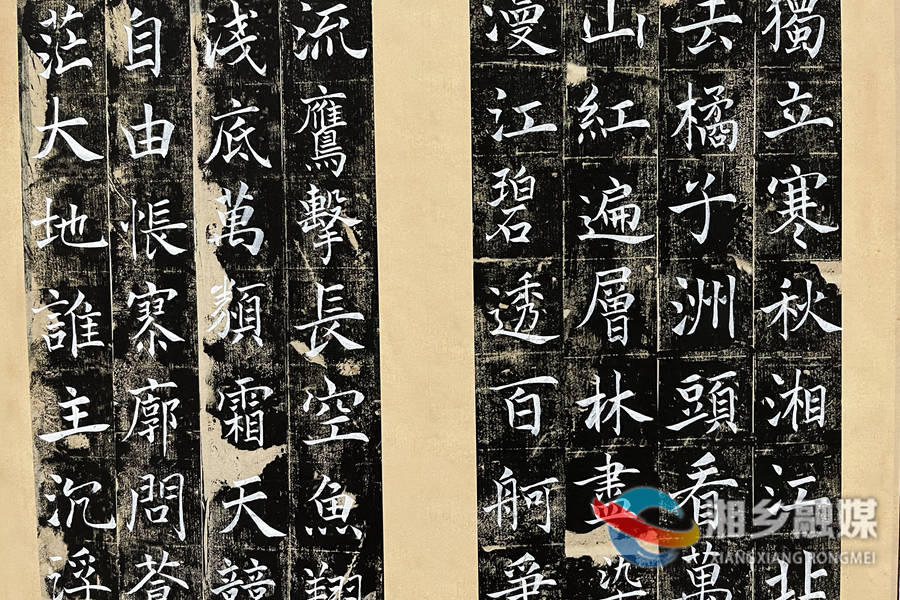 獨立寒秋湘江北
去橘子洲頭看萬
山紅遍層林盡染
漫江碧透百舸爭
流鷹擊長空魚翔
淺底萬類霜天競
自由悵寥廓問蒼
茫大地誰主沉浮
湘乡融媒
XIANGXIANG RONGMEI